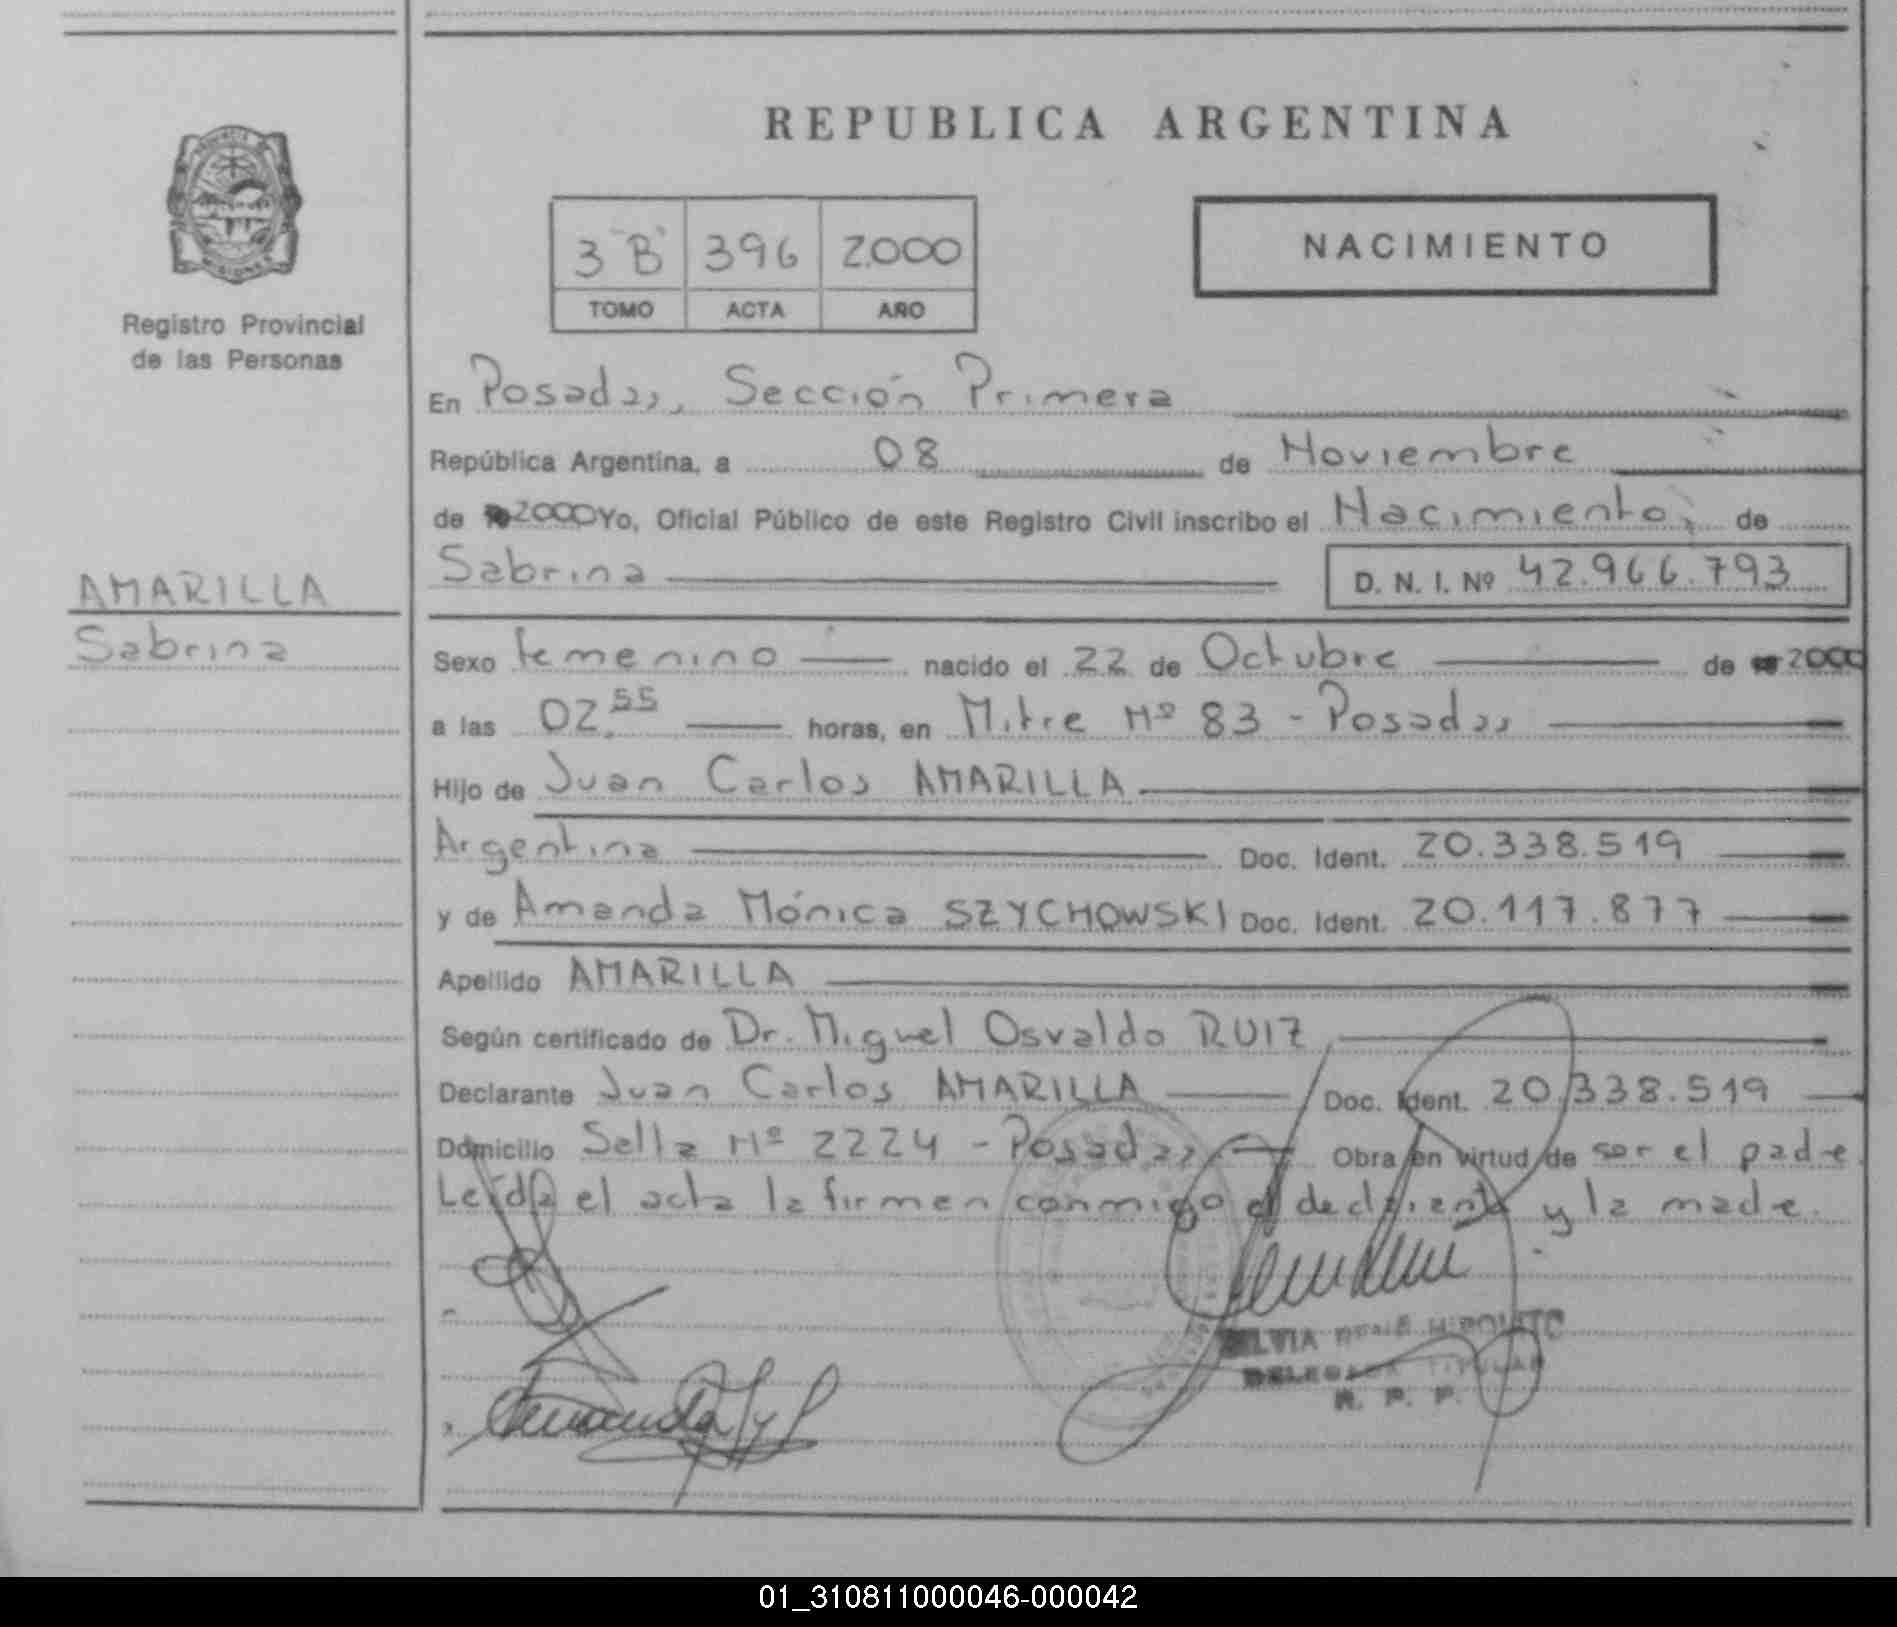 REPUBLICA ARGENTINA
3 "B" 396 2.000
TOMO ACTA AÑO
NACIMIENTO
PROVINCIA DE
MISIONES
Registro Provincial
de las Personas
En Posadas, Sección Primera
República Argentina, a 08 de Noviembre
de 2000 Yo, Oficial Público de este Registro Civil inscribo el Nacimiento, de
Sabrina D. N. I. Nº 42.966.793
AMARILLA
Sabrina
Sexo femenino nacido el 22 de Octubre de 2000
a las 02.55 horas, en Mitre Nº 83 - Posadas
Hijo de Juan Carlos AMARILLA
Argentina Doc. Ident. 20.338.519
y de Amanda Mónica SZYCHOWSKI Doc. Ident. 20.117.877
Apellido AMARILLA
Según certificado de Dr. Miguel Osvaldo RUIZ
Declarante Juan Carlos AMARILLA Doc. Ident. 20.338.519
Domicilio Sella Nº 2224 - Posadas Obra en virtud de ser el padre.
Leída el acta la firman conmigo el declarante y la madre.
SILVIA RENE HIPOLITO
DELEGADA TITULAR
R. P. P.
01_310811000046-000042